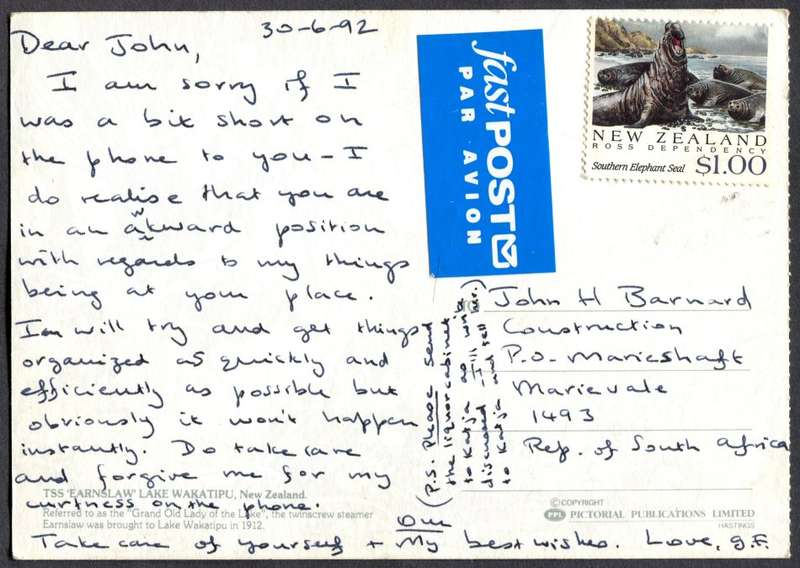 30-6-92
Dear John,
I am sorry if I
was a bit short on
the phone to you - I
do realise that you are
in an awkward position
with regards to my things
being at your place.
I will try and get things
organized as quickly and
efficiently as possible but
obviously it won't happen
instantly. Do take care
and forgive me for my
curtness on the phone.
Take care of yourself + My best wishes. Love, g.F.
(P.S. Please send
the liquor cabinet
to Katja as we
discussed - I'll write
to Katja and tell
her.)
TSS 'EARNSLAW' LAKE WAKATIPU, New Zealand.
Referred to as the "Grand Old Lady of the Lake", the twinscrew steamer
Earnslaw was brought to Lake Wakatipu in 1912.
fastPOST
PAR AVION
NEW ZEALAND
ROSS DEPENDENCY
Southern Elephant Seal $1.00
John H Barnard
Construction
P.O. Marieshaft
Marievale
1493
Rep. of South Africa
©COPYRIGHT
PPL PICTORIAL PUBLICATIONS LIMITED
HASTINGS